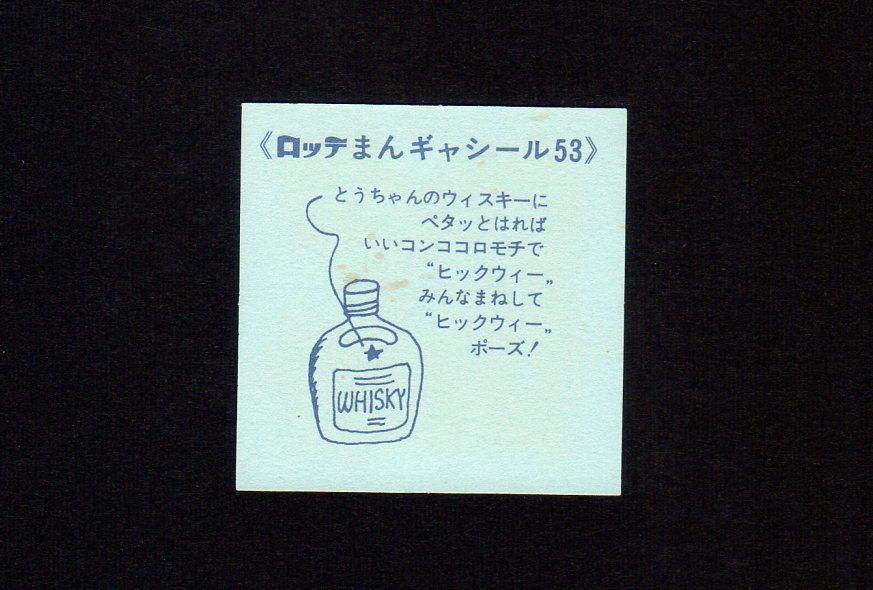 《ロッテまんギャシール53》
とうちゃんのウィスキーに
ペタッとはれば
いいコンココロモチで
“ヒックウィー„
みんなまねして
“ヒックウィー„
ポーズ!
WHISKY